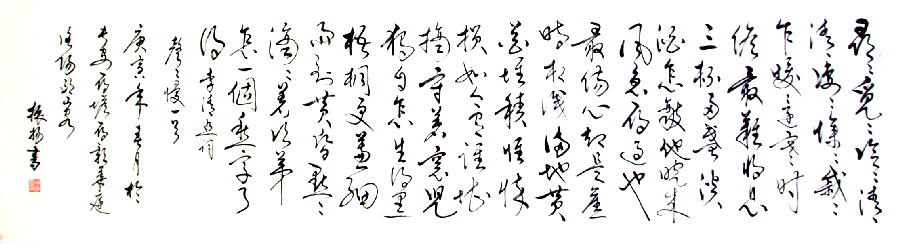 尋〻覓〻冷〻清〻
凄〻慘〻戚〻
乍暖還寒時
候最難將息
三杯兩盞淡
酒怎敵他曉來
風急雁過也
最傷心卻是舊
時相識滿地黃
花堆積憔悴
損如今有誰堪
摘守著窗兒
獨自怎生得黑
梧桐更兼細
雨到黃昏點〻
滴〻著次第
怎一個愁字了
得 李清照詞
聲〻慢一首
庚寅年春月於
長安雁塔雁翔華庭
書